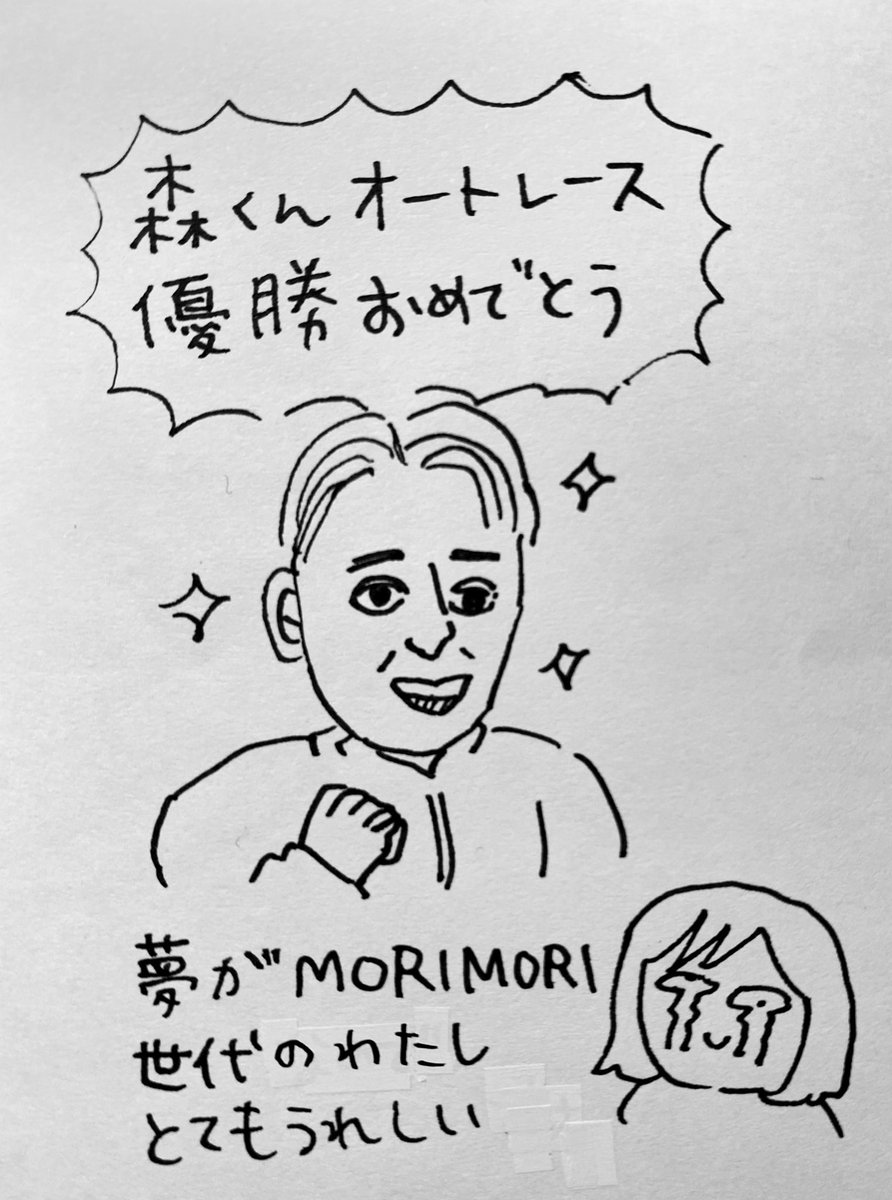 森くんオートレース
優勝おめでとう
夢がMORIMORI
世代のわたし
とてもうれしい